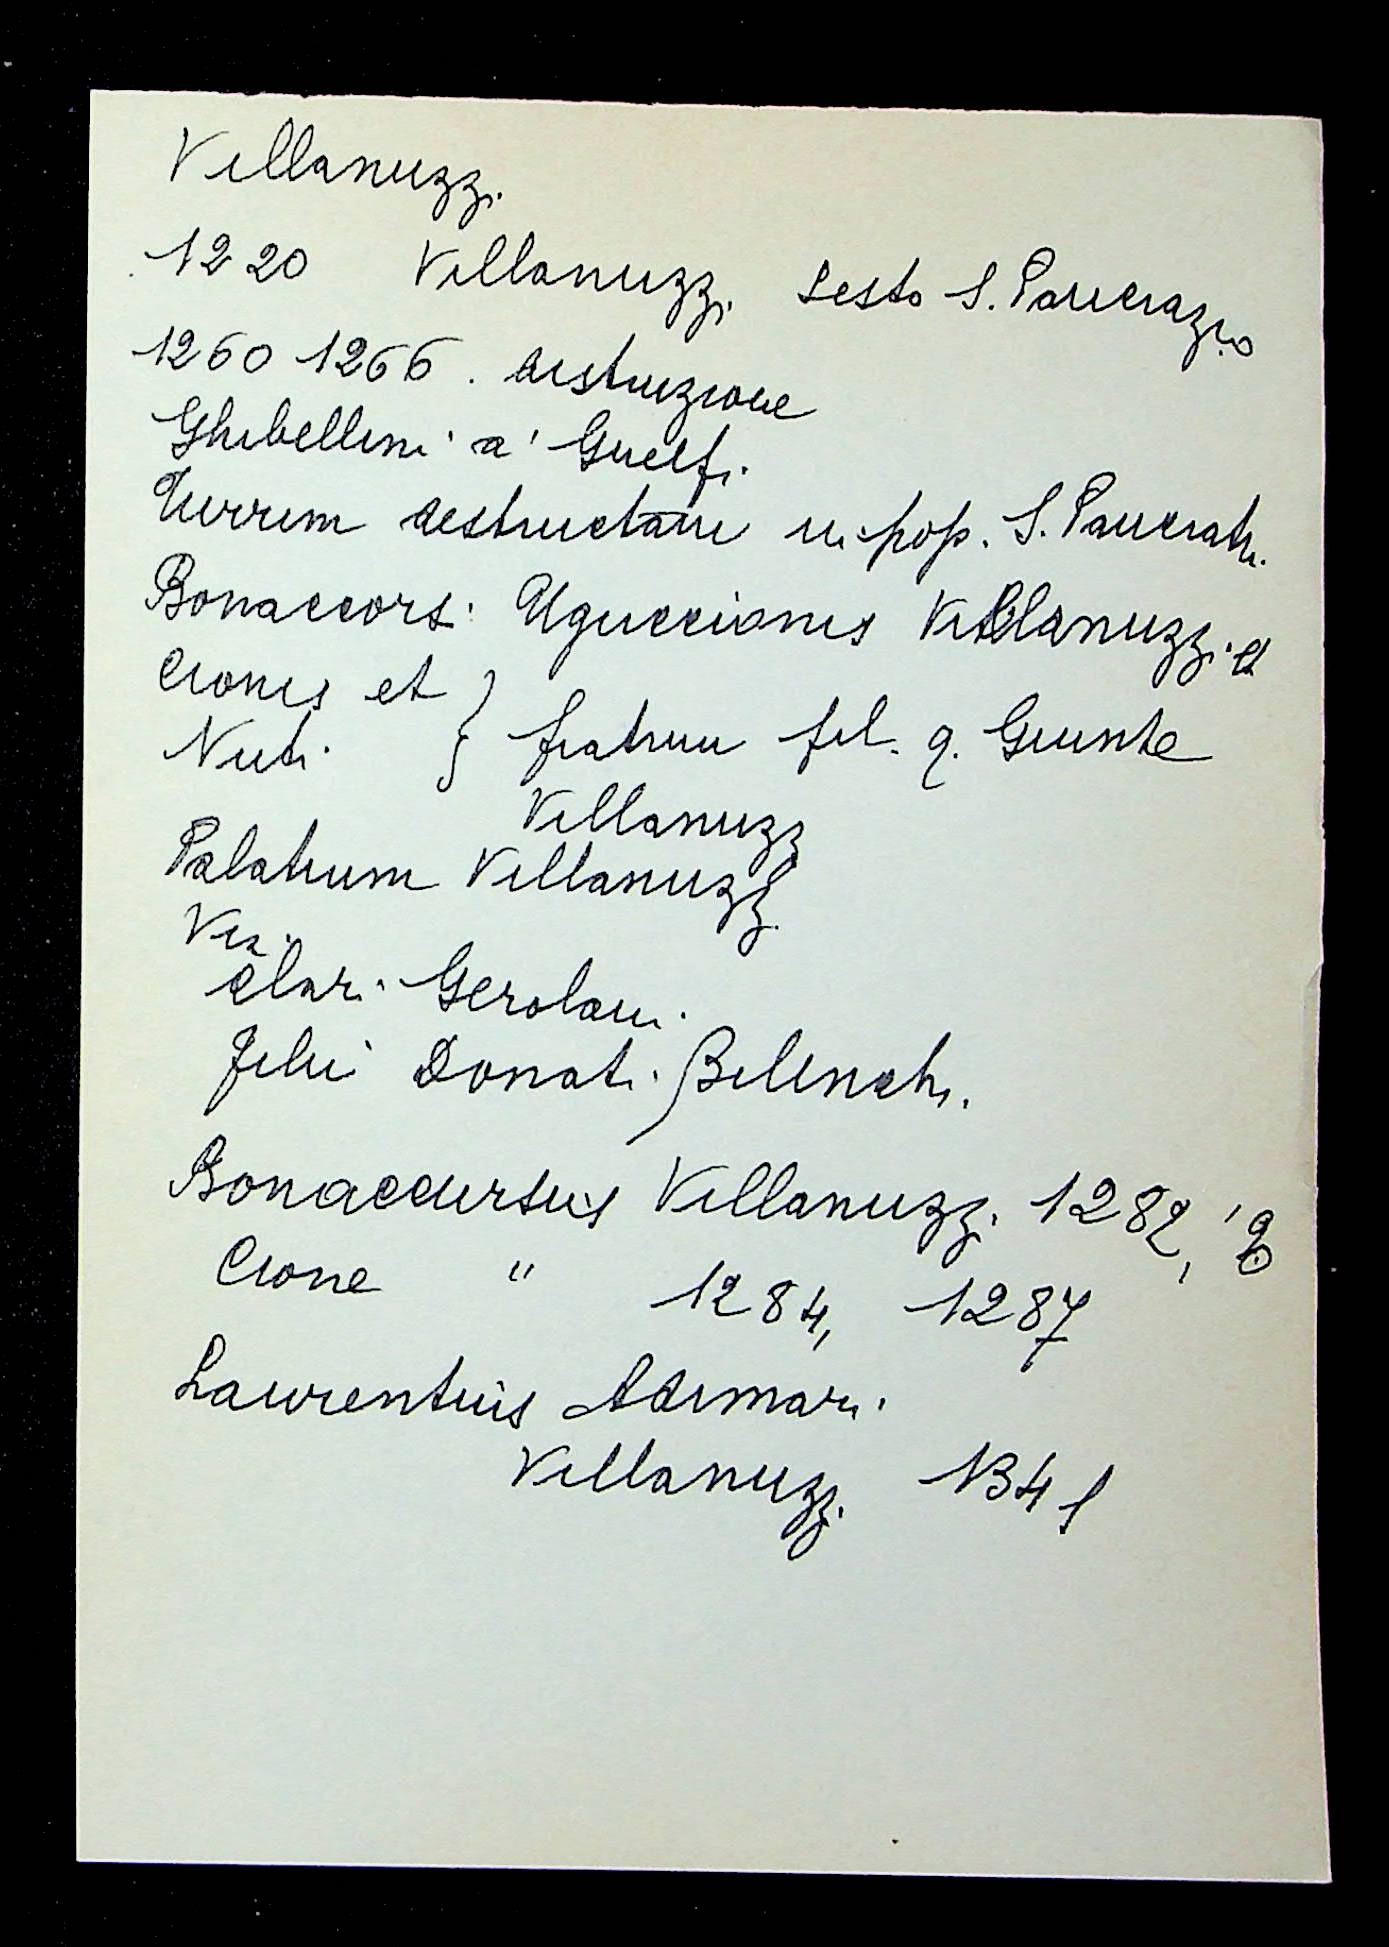 Villanuzzi
1220 Villanuzzi Sesto S. Pancrazio
1260 1266. distruzione
Ghibellini a' Guelfi.
Turrim destructam in pop. S. Pancratii.
Bonaccorsi Uguccionis Villanuzzi et
Cionis et } fratrum fil. q. Giunte
Nuti
Villanuzzi
Palatium Villanuzzi
Via
clari Gerolami
filii Donati Bilenchi.
Bonaccursus Villanuzzi 1282,
Cione " 1284, 1287
Laurentius Adimari
Villanuzzi 1341